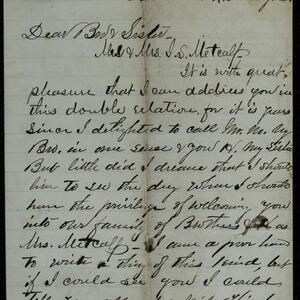 Dear Bro & Sister
Mr & Mrs. I. S. Metcalf
It is with great
pleasure that I can address you in
this double relation, for it is years
since I delighted to call Mr. M. my
Bro. in one sense & you D. my Sister
But little did I dream that I should
live to see the day when I should
have the privilege of welcoming you
into our family of Brothers as
Mrs. Metcalf. I am a poor hand
to write a thing of this kind, but
if I could see you I could